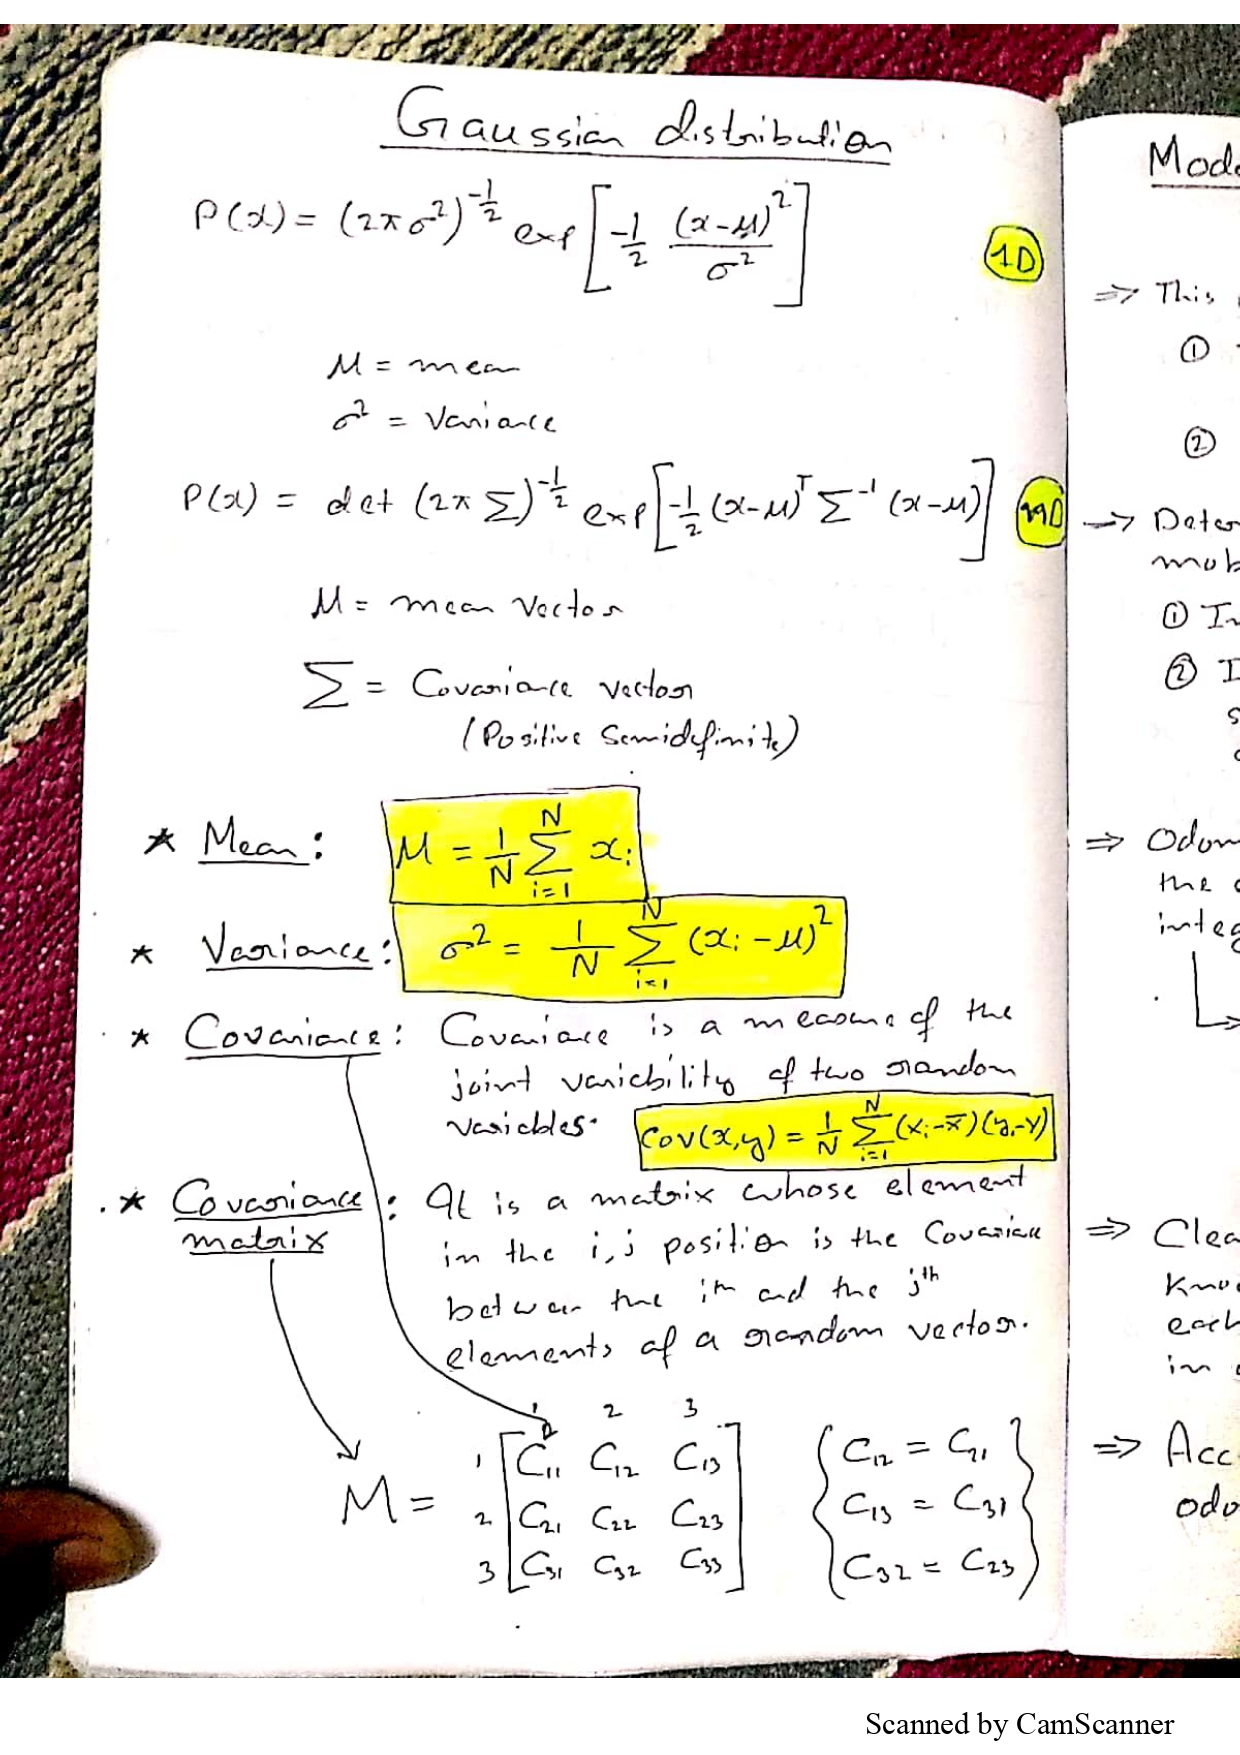 Gaussian distribution
P(x) = (2πσ²)^-1/2 exp[-1/2 (x-μ)²/σ²]
1D
μ = mean
σ² = Variance
P(x) = det (2π Σ)^-1/2 exp[-1/2 (x-μ)^T Σ^-1 (x-μ)]
μ = mean vector
Σ = Covariance vector
(Positive Semidefinite)
* Mean: μ = 1/N Σ_{i=1}^{N} x_i
* Variance: σ² = 1/N Σ_{i=1}^{N} (x_i - μ)²
* Covariance: Covariance is a measure of the
joint variability of two random
variables. Cov(x,y) = 1/N Σ_{i=1}^{N} (x_i - x̄)(y_i - Y)
* Covariance matrix: It is a matrix whose element
in the i,j position is the Covariance
between the i^th and the j^th
elements of a random vector.
1 2 3
M =
1 [C11 C12 C13]
2 [C21 C22 C23]
3 [C31 C32 C33]
{C12 = C21
C13 = C31
C32 = C23}
⇒ This
①
②
①
②
the
⇒ Acc
Scanned by CamScanner